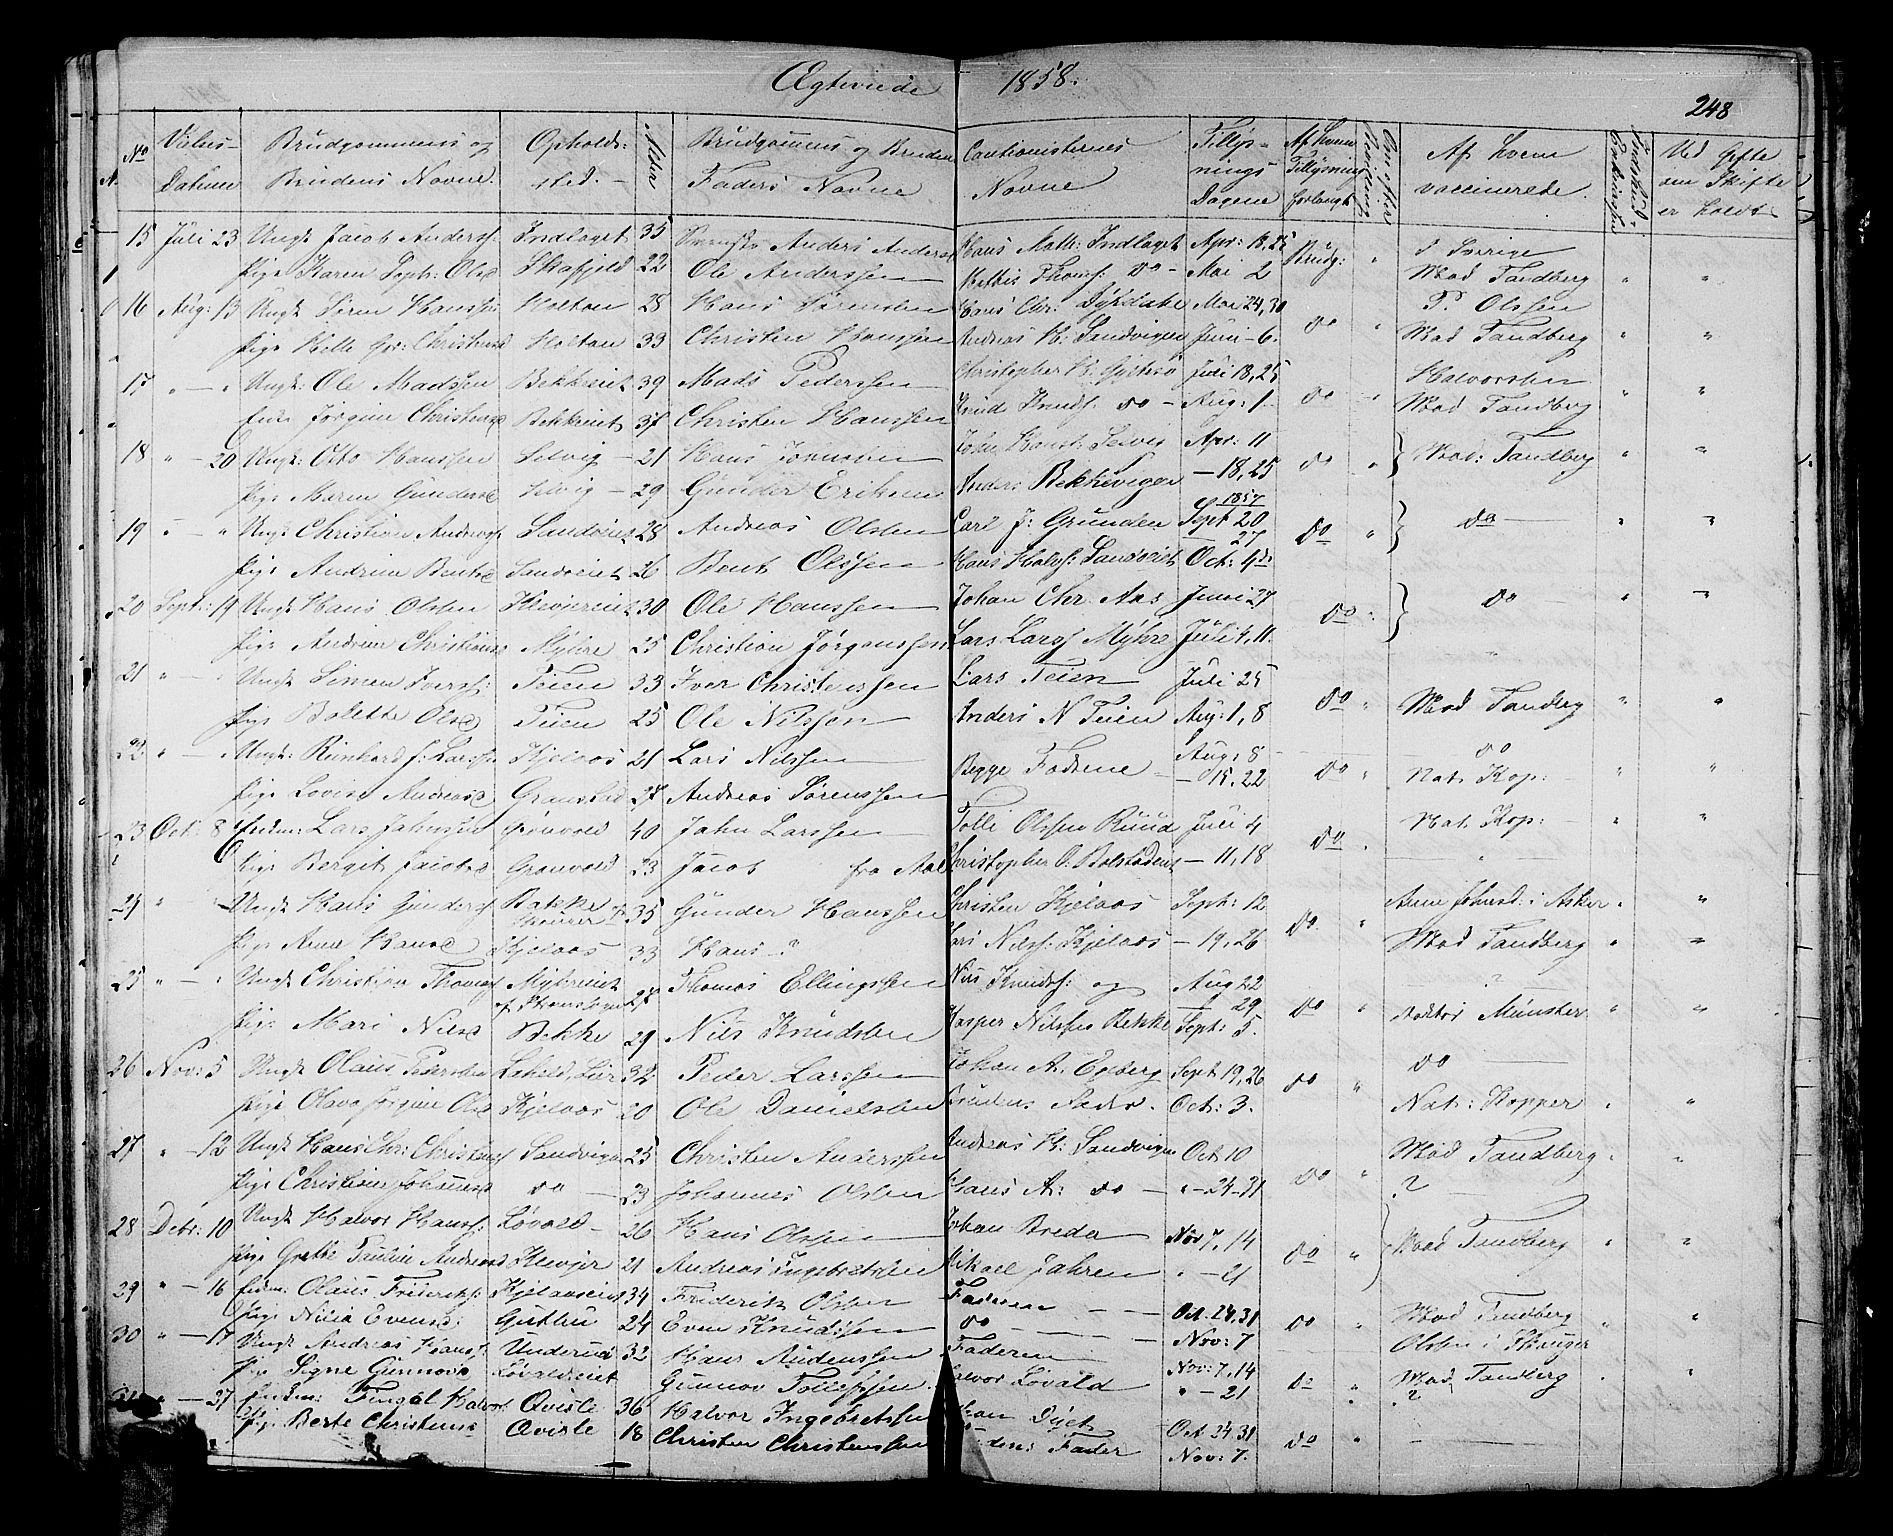 Ægteviede 1858.
248
No Vielses- Datum Brudgommens og Brudens Navne. Opholds- sted. Alder Brudgommens og Brudens Faders Navne Cautionisternes Navne Tillys- nings Dagene Af hvem Tillysning forlangt Af hvem vaccinerede. Ved Gifte om Skifte er holdt
15 Juli 23 Ungk Jacob Anderss: Indlaget 35 Anders Anders Hans Math: Indlaget Apr: 18,25 Brudg: " i Sverige
Pige Karen Soph: Olsd Skafjeld 22 Ole Anderssen Thoms: do - Mai 2 Mad Tandberg " "
16 Aug: 13 Ungk Søren Hanssen Holtan 28 Hans Sørenssen Hans Chr: Dyrdate Mai 24,30 do " P. Olssen
Pige Helle Chrisd Holtan 33 Christen Hanssen Andreas H: Sandvigen Juni - 6. Mad Tandberg " "
17 " - " Ungk: Ole Madssen Bekkeiet 39 Mads Pederssen Christopher H. Juli 18,25 do " Halvorssen
Enke Jørgine Christensd Bekkeiet 37 Christen Hanssen Knud Knuds: do - Aug: 1 - Mad Tandberg " "
18 " - 20 Ungk: Otto Hanssen Selvig - 21 Hans Johnssen John Hanss: Selvig Apr: 11 do " Mad: Tandberg " "
Pige Maren Gundersd Selvig - 29 Gunder Erikssen Anders Bekkevigge - 18,25
19 " - " Ungk: Christian Andreass Sandveiet 28 Andreas Olssen Carl J: Grunden 1857 Sept 20 - 27 do " do " "
Pige Andrine Bentsd Sandveiet 26 Bent Olssen Hans Halvs: Sandveiet Oct: 4de
20 Sept: 19 Ungk Hans Olssen Klevjereiet 30 Ole Hanssen Johan Chr. Aas Juni 27 do " do " "
Pige Andrine Christians Myhre 25 Christian Jørgenssen Lars Larss Myhre Juli 4, 11.
21 " - " Ungk Simen Iverss: Teien 33 Iver Christenssen Lars Teien Juli 25
Pige Bolette Olsd Teien 25 Ole Nilssen Anders N Teien Aug: 1, 8 do " Mad Tandberg " "
22 " - " Ungk: Reinhard J: Larssen Kjelaas 21 Lars Nilssen Begge Fædrene - Aug: 8 do
Pige Lovise Andreasd Granstad 27 Andreas Sørenssen - 15, 22 do " Nat. Kop: " "
23 Oct: 8 Enkem: Lars Johnssen Grønvold 40 John Larssen Tolli Olssen Ruud Juli 4 Nat. Kop: " "
Pige Bergit Jacobsd Grønvold 23 Jacob fra Aal Christopher O. Bolstadeiet - 11, 18 do " "
24 " - Ungk Hans Gunderss Bakke 35 Gunder Hanssen Christen Kjelaas Sept: 12 Anne Johnsd: i Asker " "
Pige Anne Hansd Kjelaas 33 Hans - ? Lars Nilss: Kjelaas - 19, 26 do " Mad Tandberg " "
25 " - " Ungk Christian Thomass Myhreeiet 27 Thomas Ellingssen Nils Knuds: og Aug 22 - 29 ?
Pige Mari Nilsd Bekke 29 Nils Knudssen Kasper Nilssen Bekke Sept: 5. do " Doktor Münster " "
26 Nov: 5 Ungk Olaus Pederssen Lier 32 Peder Larssen Johan A. Egeberg Sept 19, 26 do " do
Pige Olava Jørgine Olsd Kjelaas 20 Ole Danielssen Brudens Fader. Oct: 3. Nat: Kopper " "
27 " - 12 Ungk Hans Chr: Christens Sandvigen 25 Christen Anderssen Andreas H: Sandvigen Oct 10 Mad Tandberg " "
Pige Christine Johannesd do - 23 Johannes Olssen Hans A: do - " - 24 - 31 do " ?
28 Debr: 10 Ungk Halvor Hanss: Løvald - 26 Hans Olssen Johan Breda Nov 7, 14 do " Mad Tandberg " "
Pige Grethe Pauline Andreasd Klevjer 21 Andreas Ingebretssen Mikael Jahren " - 21
29 " - 16 Enkem: Olaus Frideriks: Kjelaaseiet 34 Friderik Olssen Faderen - - Oct. 24,31 do " Mad Tandberg "
Pige Nilia Evensd: Guttu 24 Even Knudssen do - Nov: 7 Olssen i Skouger
30 " - 17 Ungk Andreas Hanss: Underud 32 Hans Audenssen Faderen Nov: 7, 14 do " Mad Tandberg " "
Pige Signe Gunnorsd Løvaldeiet Gunnor Tollefssen. Halvor Lövald " - 21 ?
31 " - 27 Enkem: Fingal Halvors Qvisle 36 Halvor Ingebretssen Johan Dyet Oct 24,31
Pige Berte Christensd Qvisle 18 Christen Christenssen Brudens Fader Nov: 7. do " -